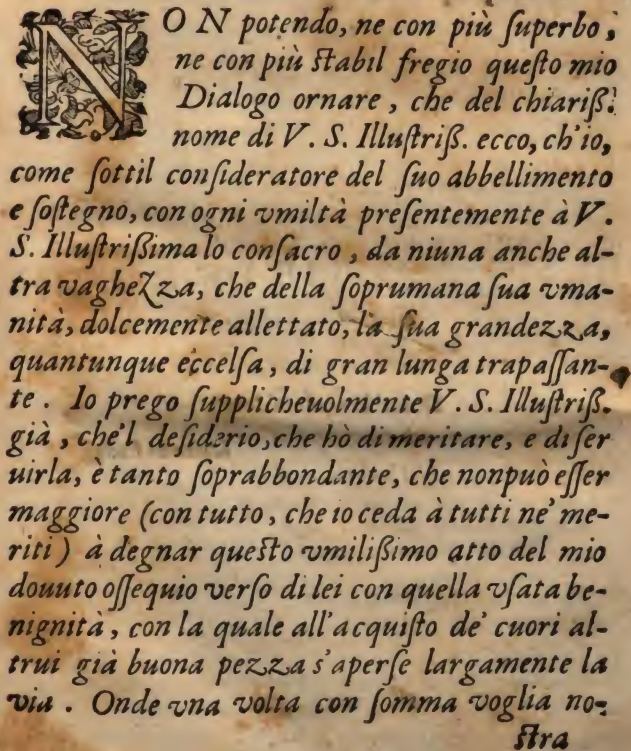 NON potendo, ne con più ſuperbo,
ne con più ſtabil fregio queſto mio
Dialogo ornare, che del chiariß.
nome di V. S. Illuſtriß. ecco, ch'io,
come ſottil conſideratore del ſuo abbellimento
e ſoſtegno, con ogni vmiltà preſentemente à V.
S. Illuſtrißima lo conſacro, da niuna anche al-
tra vaghezza, che della ſoprumana ſua vma-
nità, dolcemente allettato, la ſua grandezza,
quantunque eccelſa, di gran lunga trapaſſan-
te. Io prego ſupplicheuolmente V. S. Illuſtriß.
già, che'l deſiderio, che hò di meritare, e di ſer
uirla, è tanto ſoprabbondante, che nonpuò eſſer
maggiore (con tutto, che io ceda à tutti ne' me-
riti) à degnar queſto vmilißimo atto del mio
douuto oſſequio verſo di lei con quella vſata be-
nignità, con la quale all'acquiſto de' cuori al-
trui già buona pezza s'aperſe largamente la
via. Onde vna volta con ſomma voglia no-
ſtra